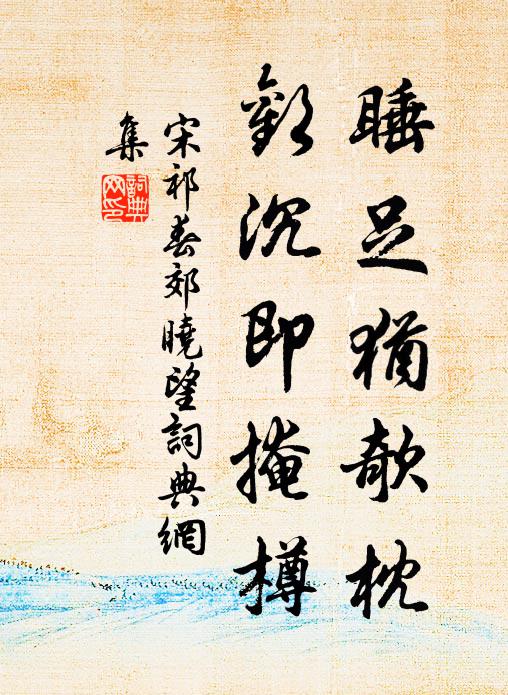 睡足猶欹枕
歡沉即掩樽
宋祁春郊曉望詞典網
集
詞典
网印